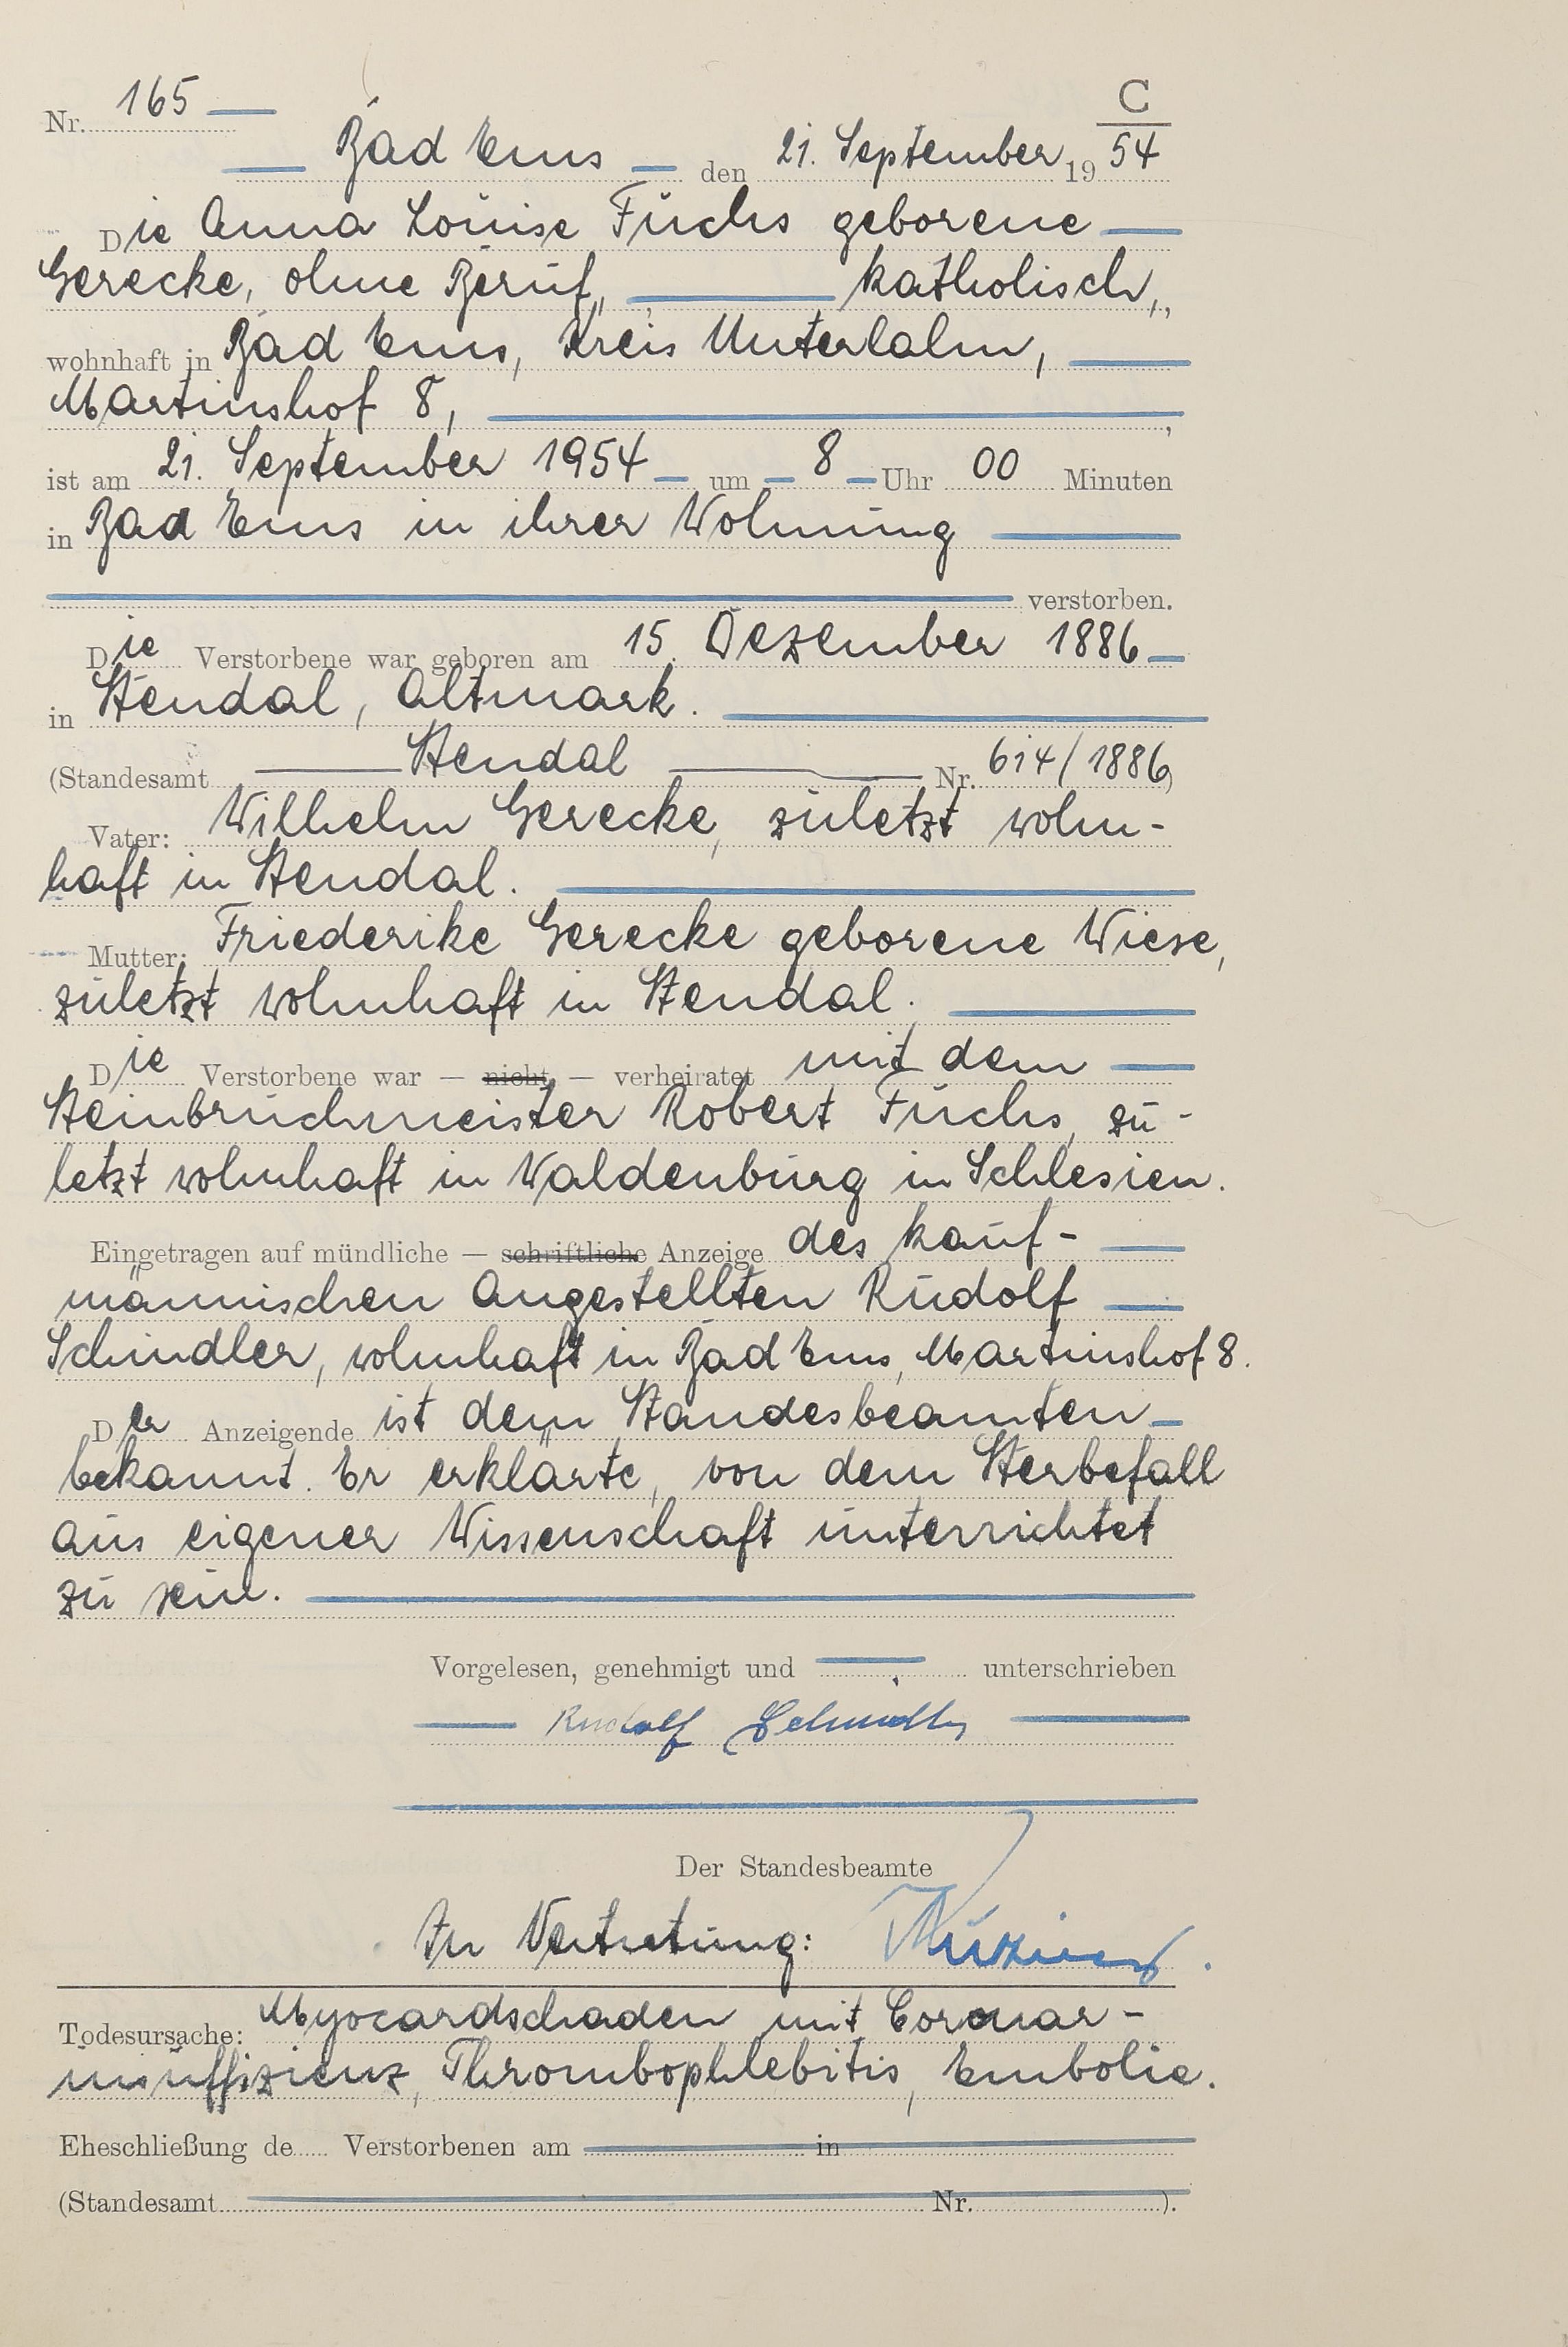 C
Nr. 165
Bad Ems den 21. September 19 54
Die Anna Louise Fuchs geborene
Gerecke, ohne Beruf, katholisch,
wohnhaft in Bad Ems, Kreis Unterlahn,
Martinshof 8,
ist am 21. September 1954 um 8 Uhr 00 Minuten
in Bad Ems in ihrer Wohnung
verstorben.
Die Verstorbene war geboren am 15. Dezember 1886
in Stendal, Altmark.
(Standesamt Stendal Nr. 614/1886)
Vater: Wilhelm Gerecke, zuletzt wohn-
haft in Stendal.
Mutter: Friederike Gerecke geborene Wiese,
zuletzt wohnhaft in Stendal.
Die Verstorbene war — nicht — verheiratet mit dem
Steinbruchmeister Robert Fuchs, zu-
letzt wohnhaft in Waldenburg in Schlesien.
Eingetragen auf mündliche — schriftliche Anzeige des kauf-
männischen Angestellten Rudolf
Schindler, wohnhaft in Bad Ems, Martinshof 8.
Der Anzeigende ist dem Standesbeamten
bekannt. Er erklärte, von dem Sterbefall
aus eigener Wissenschaft unterrichtet
zu sein.
Vorgelesen, genehmigt und unterschrieben
Rudolf Schindler
Der Standesbeamte
In Vertretung:
Todesursache: Myocardschaden mit Coronar-
insuffizienz, Thrombophlebitis, Embolie.
Eheschließung de Verstorbenen am in
(Standesamt Nr. ).